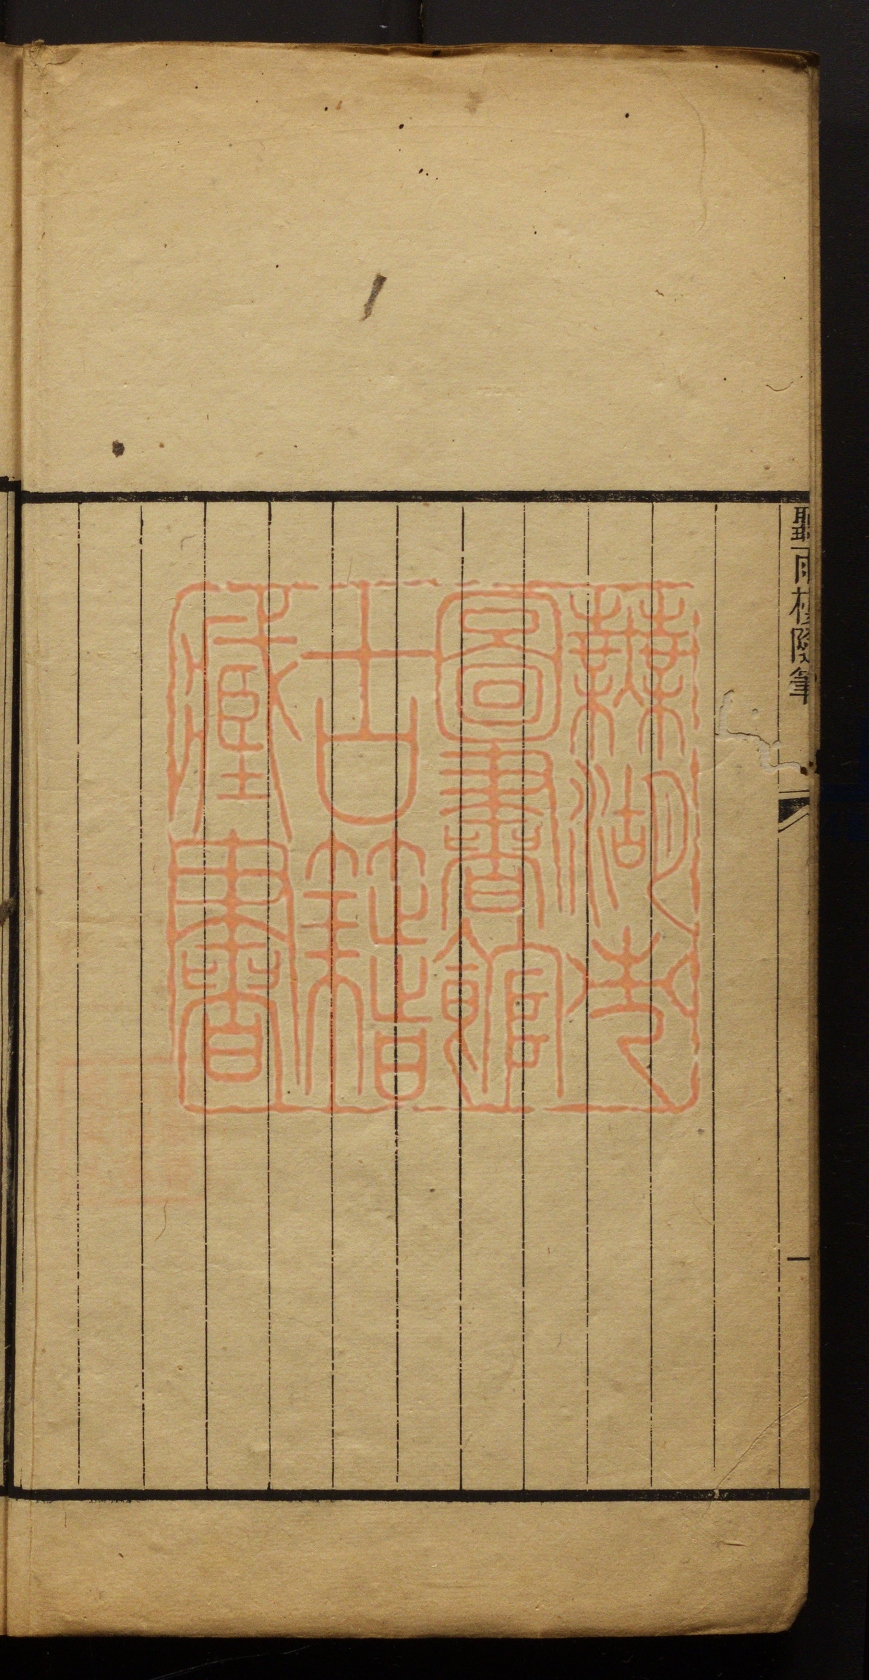 聽雨樓隨筆
一
蕪湖市
圖書館
古籍
藏書